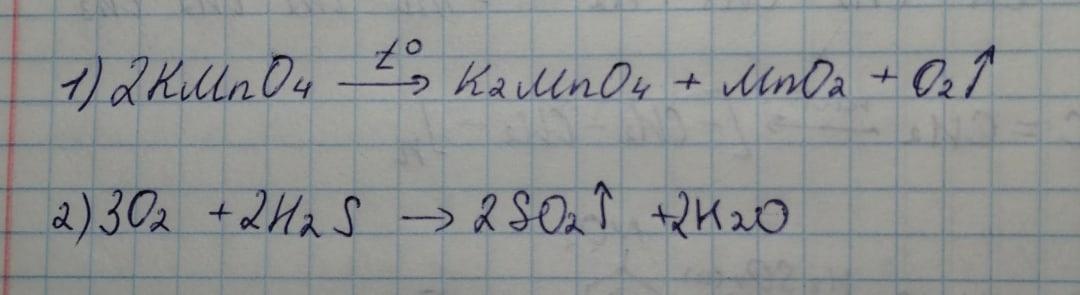 1) 2KMnO₄ —t°→ K₂MnO₄ + MnO₂ + O₂↑
2) 3O₂ + 2H₂S → 2SO₂↑ + 2H₂O